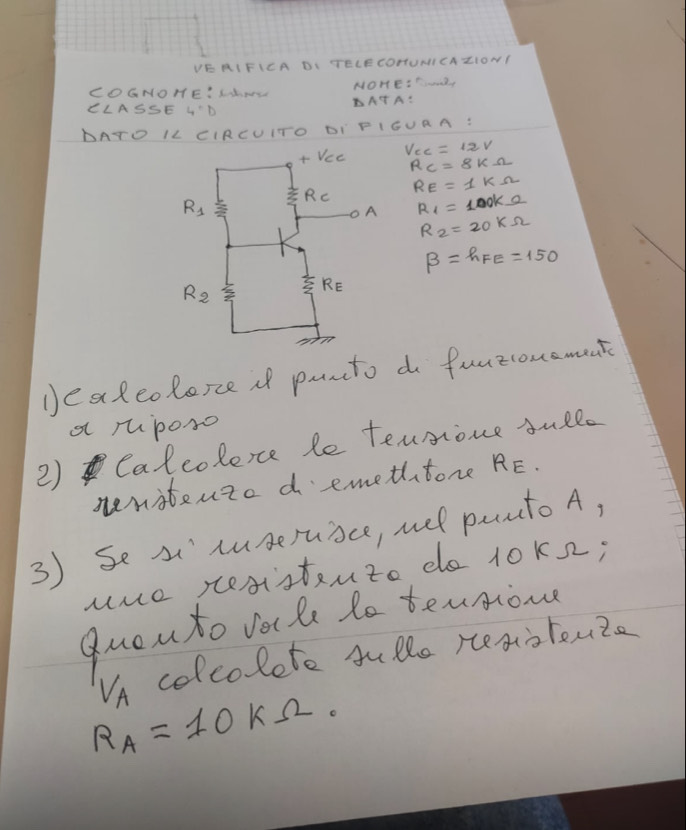 VERIFICA DI TELECOMUNICAZIONI
COGNOME:
NOME:
CLASSE 4°D
DATA:
DATO IL CIRCUITO DI FIGURA:
+ Vcc
RC
A
R1
R2
RE
Vcc = 12V
RC = 8KΩ
RE = 1KΩ
R1 = 100KΩ
R2 = 20KΩ
β = hFE = 150
1) Calcolare il punto di funzionamento
a riposo
2) Calcolare la tensione sulla
resistenza di emettitore RE.
3) Se si inserisce, nel punto A,
una resistenza da 10KΩ;
Quanto vale la tensione
VA calcolata sulla resistenza
RA = 10KΩ.